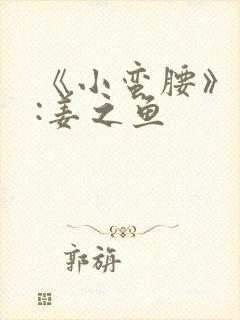 《小蛮腰》
:姜之鱼
郭旃